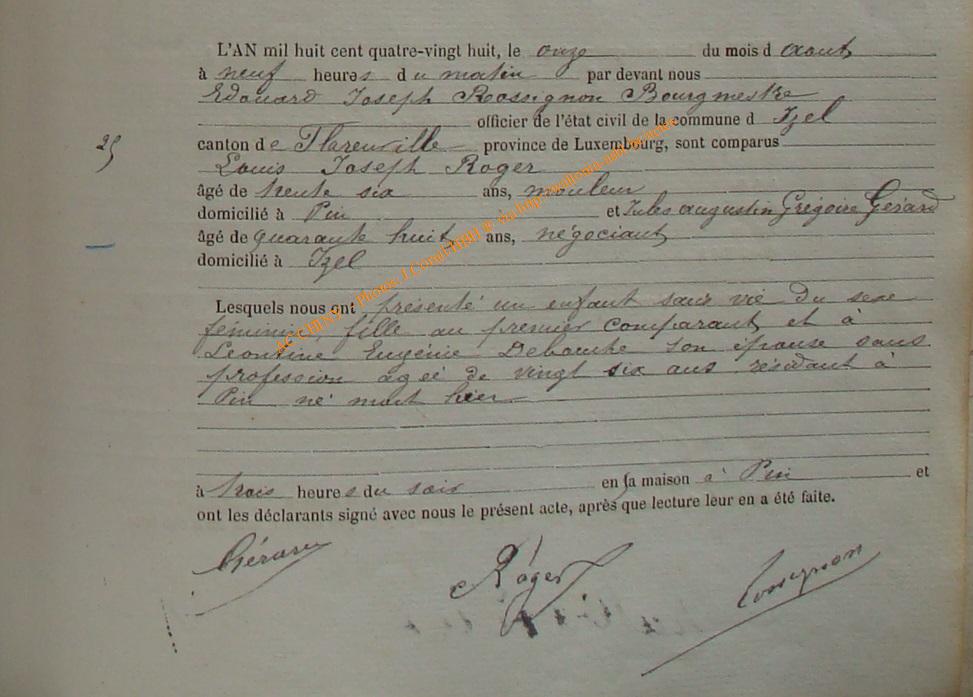 L'AN mil huit cent quatre-vingt huit, le onze du mois d août
à neuf heures du matin par devant nous
Edouard Joseph Rossignon Bourgmestre
officier de l'état civil de la commune d Izel
25
canton de Florenville province de Luxembourg, sont comparus
Louis Joseph Roger
âgé de trente six ans, mouleur
domicilié à Pin et Jules Augustin Grégoire Gérard
âgé de quarante huit ans, négociant
domicilié à Izel
Lesquels nous ont présenté un enfant sans vie du sexe
féminin, fille au premier comparant et à
Léontine Eugénie son épouse sans
profession âgée de vingt six ans résidant à
Pin né mort hier
à trois heures du soir en sa maison à Pin et
ont les déclarants signé avec nous le présent acte, après que lecture leur en a été faite.
Gérard Roger Rossignon